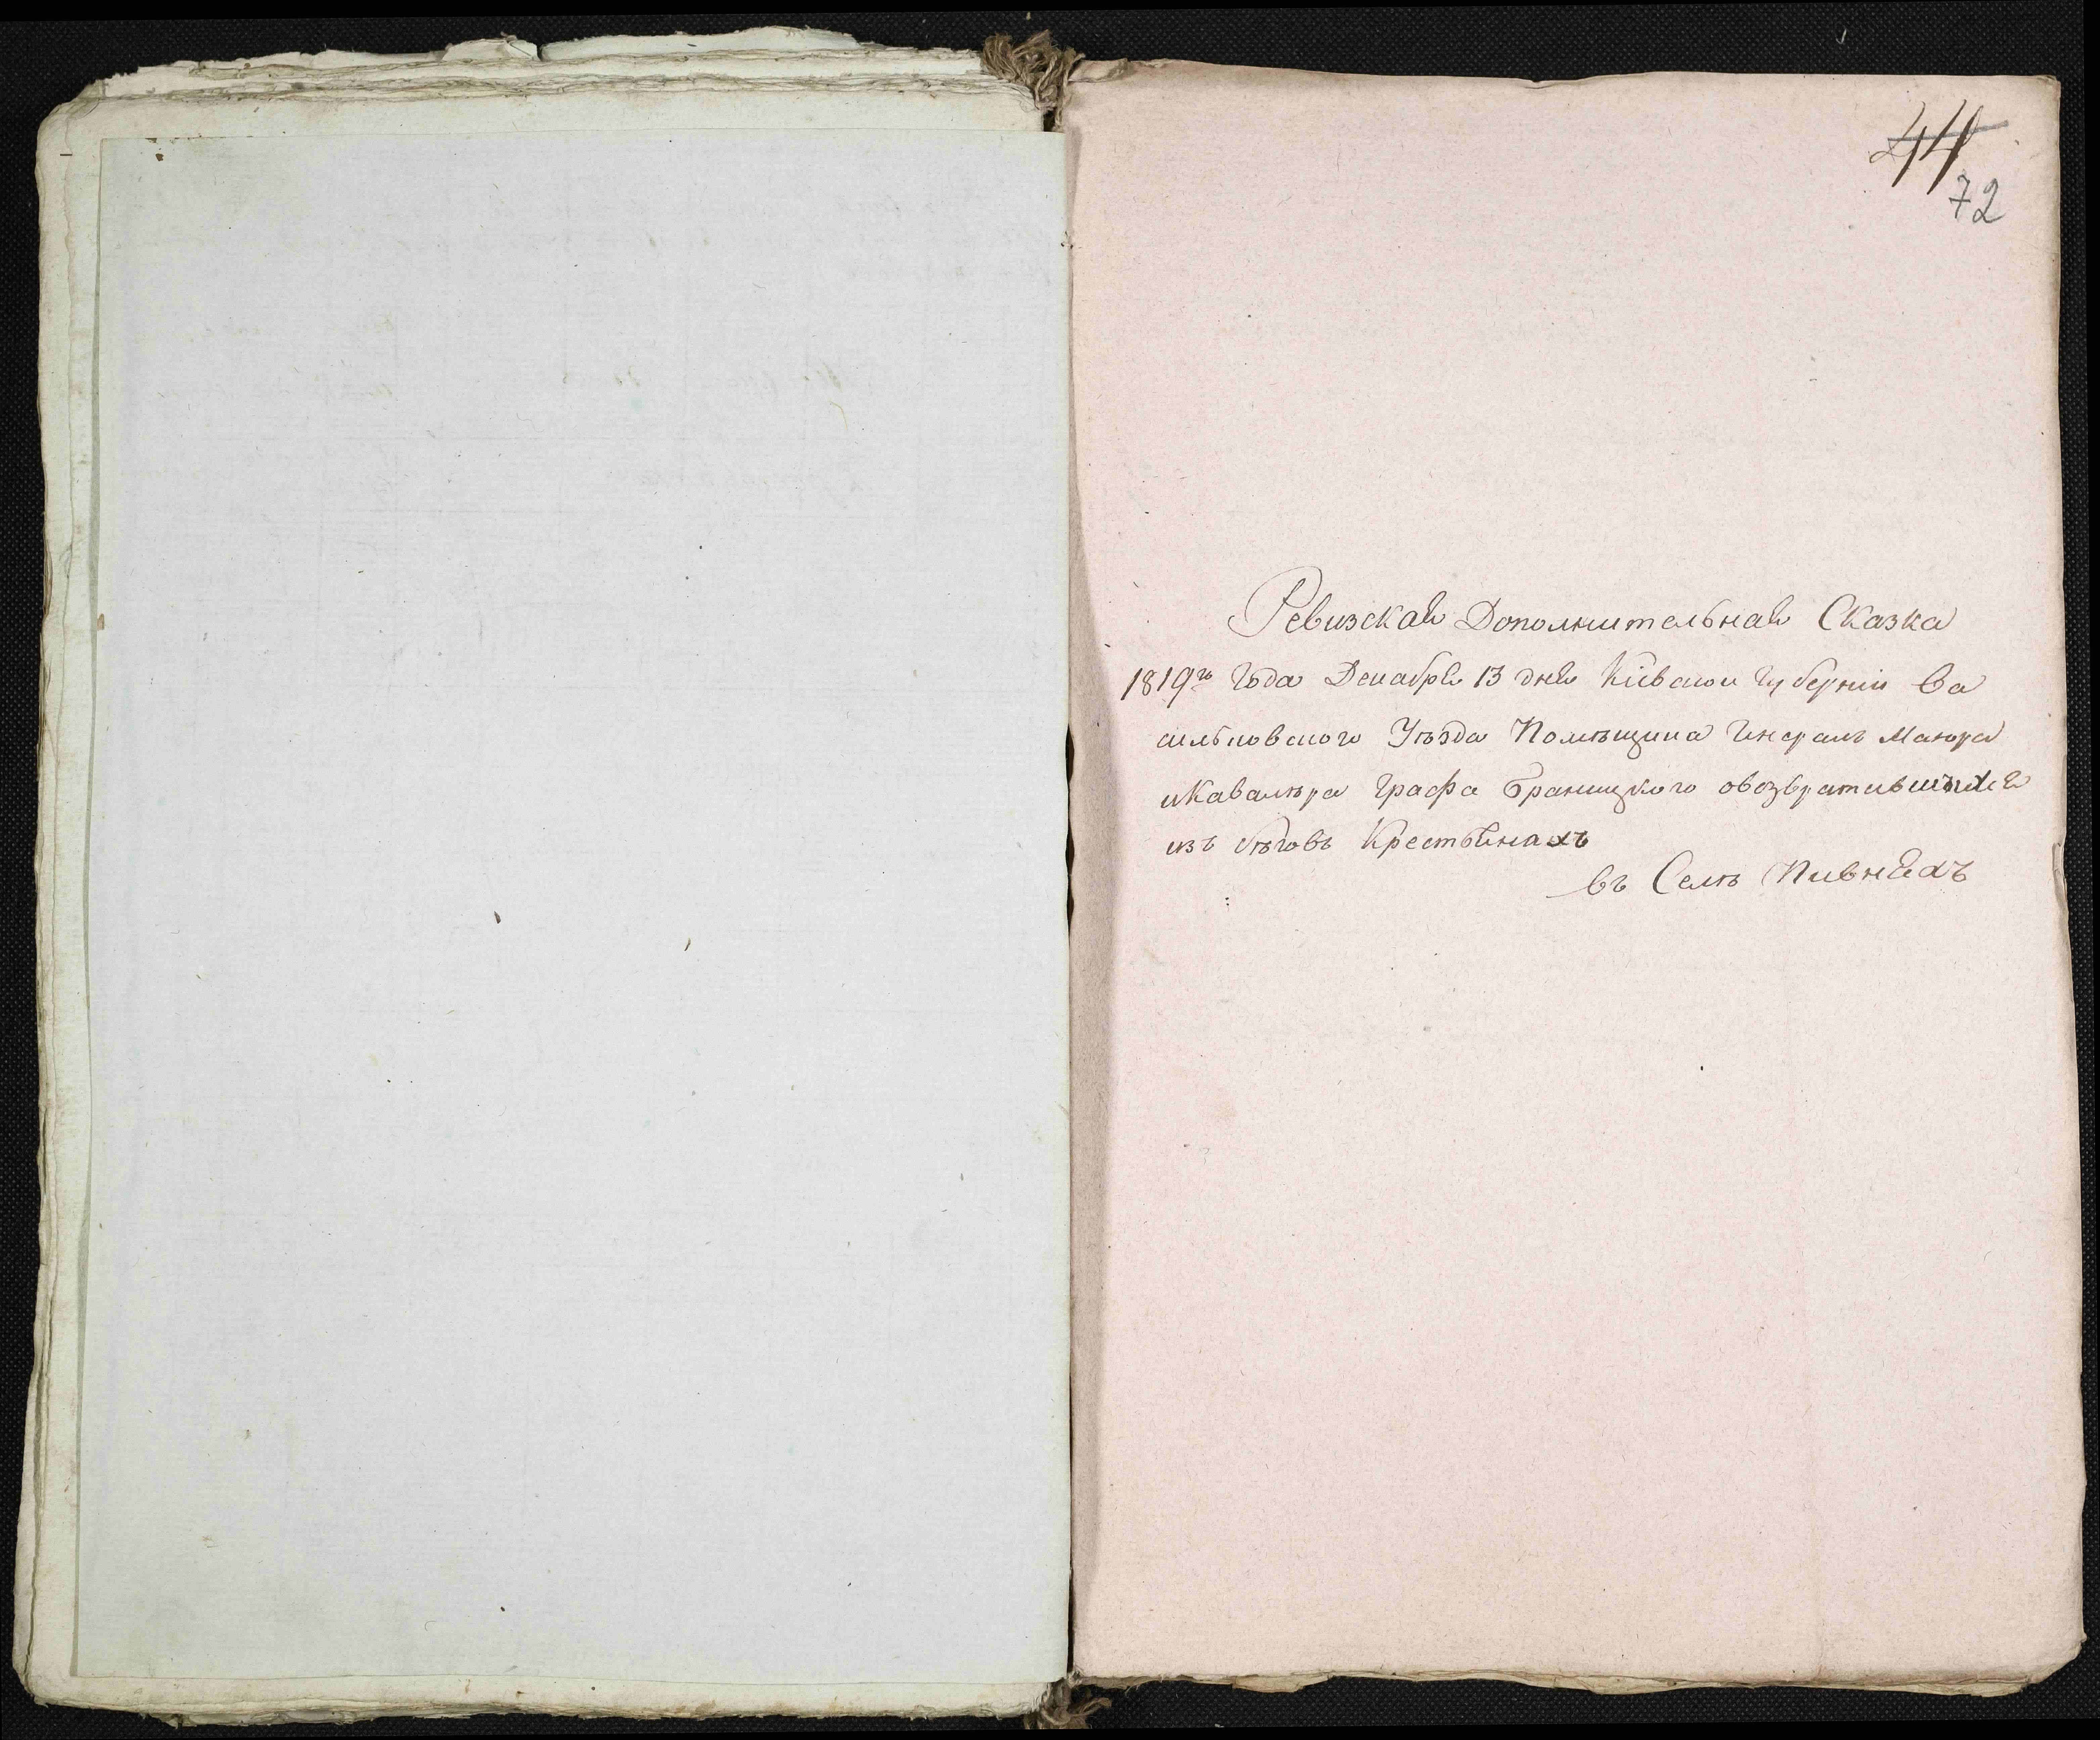 44
72
Ревизская Дополнительная Сказка
1819го года Декабря 13 дня Кіевской губерніи Ва
сильковского Уѣзда Помѣщика Генералъ Маиора
иКавалѣра Графа Браницкого овозвратившихся
изъ бѣговъ Крестьянахъ
въ Селѣ Пивняхъ